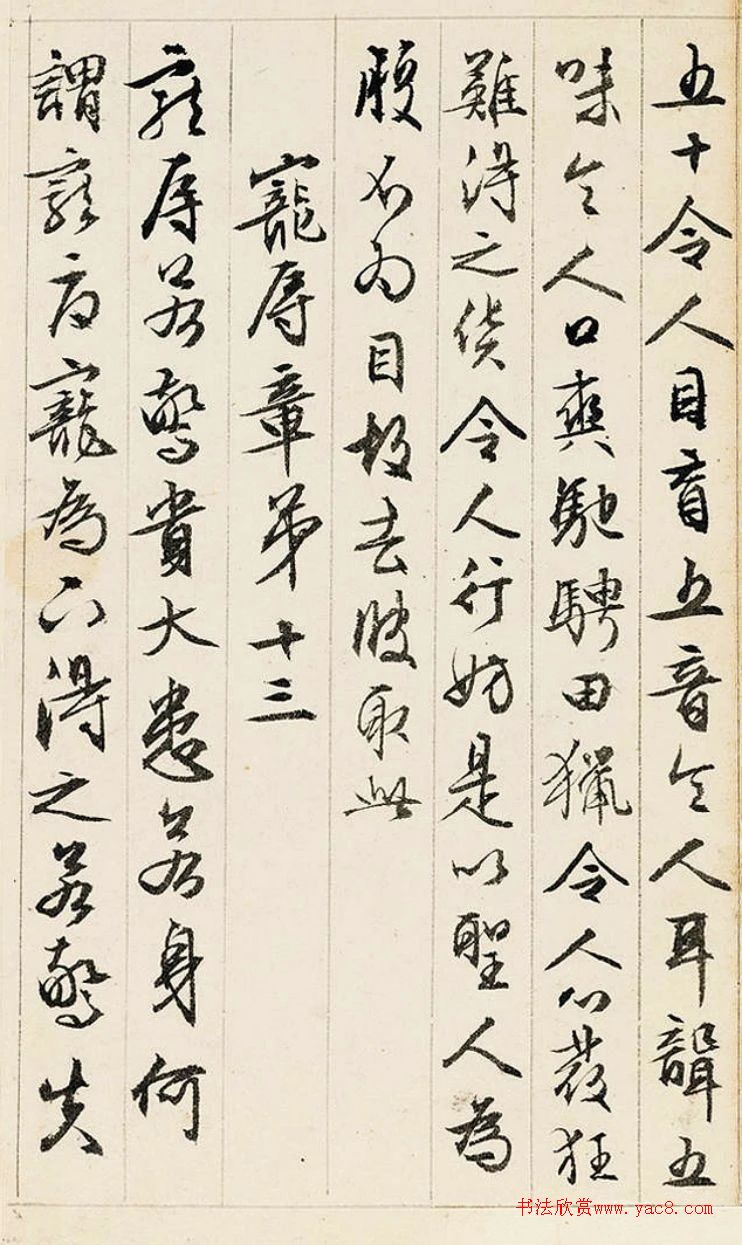 五十令人目盲五音令人耳聾五
味令人口爽馳騁田獵令人心發狂
難得之貨令人行妨是以聖人為
腹不為目故去彼取此
寵辱章第十三
寵辱若驚貴大患若身何
謂寵辱寵為下得之若驚失
书法欣赏www.yac8.com